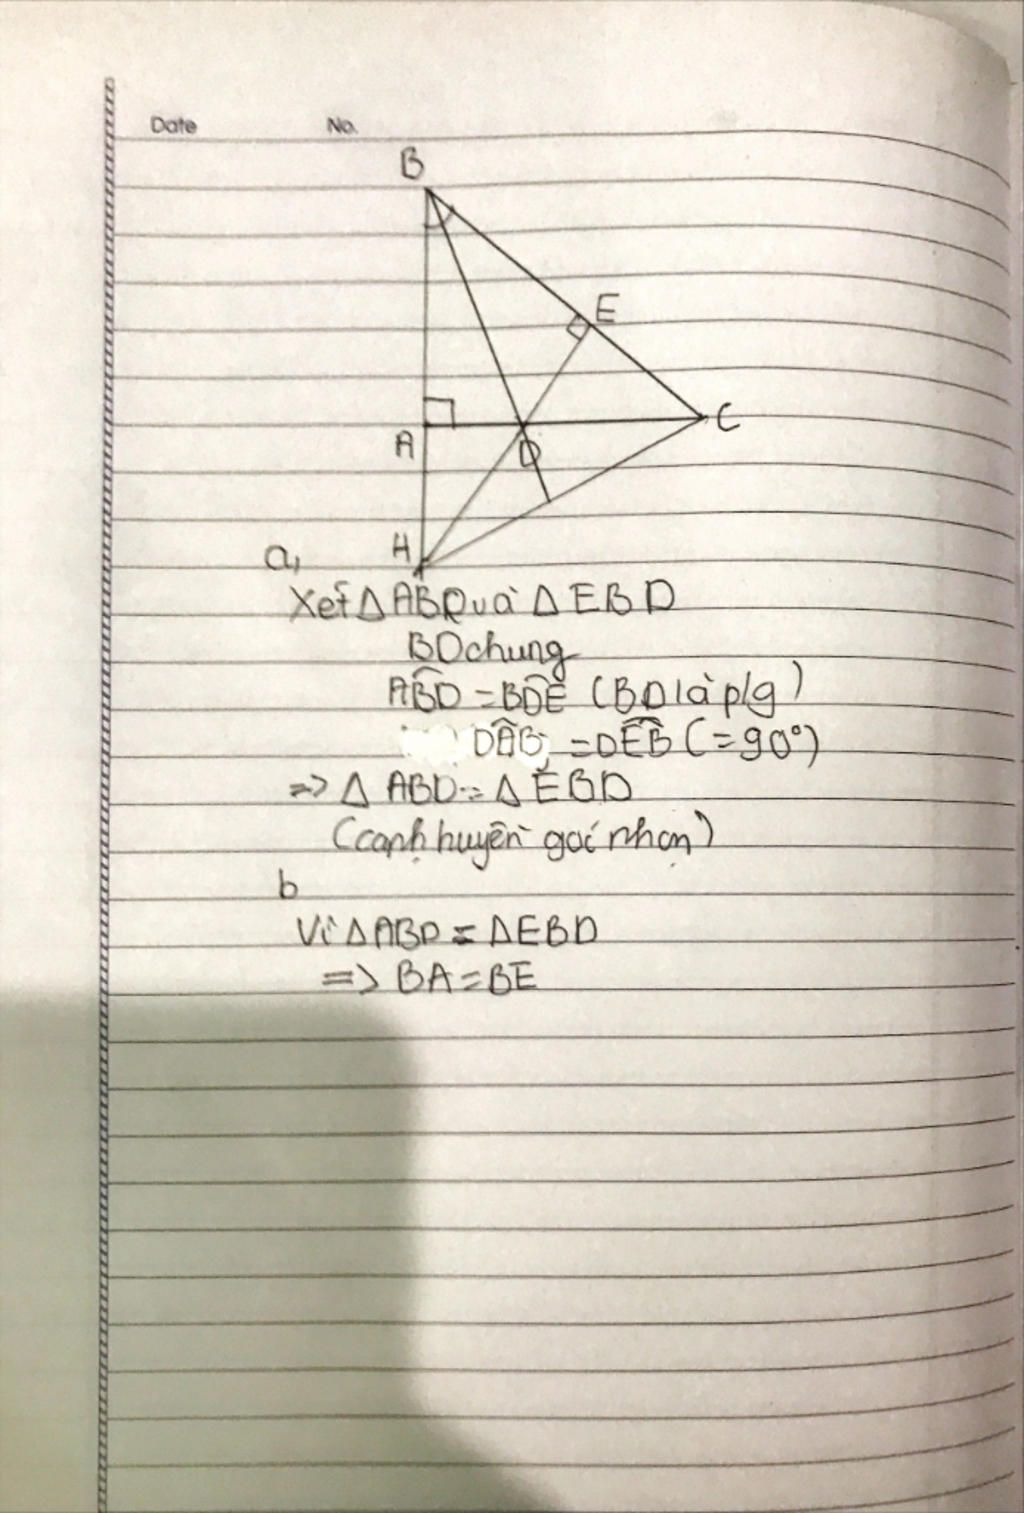 Date No.
B
E
A
C
D
H
a,
Xét ΔABD và ΔEBD
BD chung
ABD = BDE (BD là p/g)
DAB = DEB (= 90°)
=> Δ ABD = Δ EBD
(cạnh huyền góc nhọn)
b
Vì ΔABD = ΔEBD
=> BA = BE